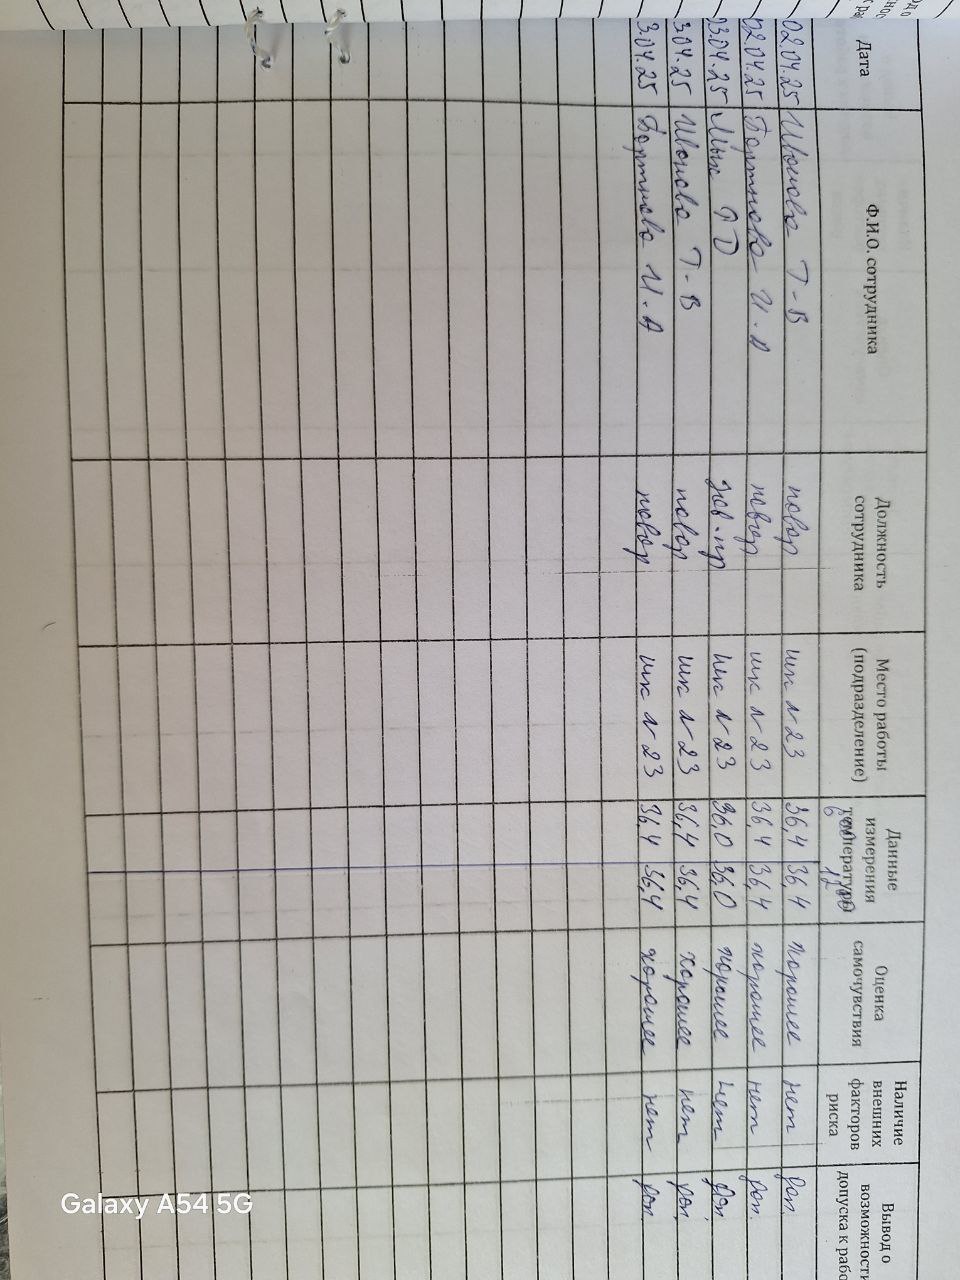 Дата Ф.И.О. сотрудника Должность сотрудника Место работы (подразделение) Данные измерения температуры Оценка самочувствия Наличие внешних факторов риска Вывод о возможности допуска к рабо
02.04.25 Т-В повар шк №23 36,4 36,4 хорошее нет доп.
02.04.25 Бортнова И.А повар шк №23 36,4 36,4 хорошее нет доп.
03.04.25 зав.пр шк №23 36,0 36,0 хорошее нет доп.
3.04.25 Т-В повар шк №23 36,4 36,4 хорошее нет доп.
3.04.25 Бортнова И.А повар шк №23 36,4 36,4 хорошее нет доп.
Galaxy A54 5G